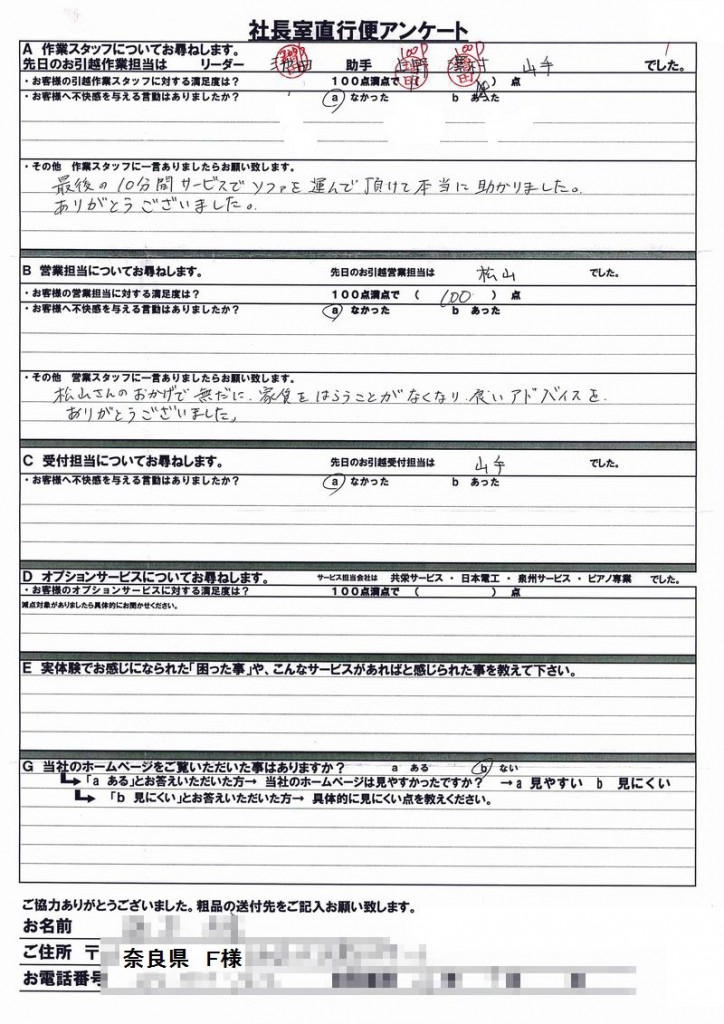 社長室直行便アンケート
A 作業スタッフについてお尋ねします。
先日のお引越作業担当は リーダー 助手 山手 でした。
・お客様の引越作業スタッフに対する満足度は? 100点満点で ( ) 点
・お客様へ不快感を与える言動はありましたか? a なかった b あった
・その他 作業スタッフに一言ありましたらお願い致します。
最後の10分間サービスでソファを運んで頂けて本当に助かりました。
ありがとうございました。
B 営業担当についてお尋ねします。 先日のお引越営業担当は 松山 でした。
・お客様の営業担当に対する満足度は? 100点満点で ( 100 ) 点
・お客様へ不快感を与える言動はありましたか? a なかった b あった
・その他 営業スタッフに一言ありましたらお願い致します。
松山さんのおかげで無だに、家賃をはらうことがなくなり、良いアドバイスを
ありがとうございました。
C 受付担当についてお尋ねします。 先日のお引越受付担当は 山手 でした。
・お客様へ不快感を与える言動はありましたか? a なかった b あった
D オプションサービスについてお尋ねします。 サービス担当会社は 共栄サービス ・ 日本電工 ・ 泉州サービス ・ ピアノ専業 でした。
・お客様のオプションサービスに対する満足度は? 100点満点で ( ) 点
減点対象がありましたら具体的にお聞かせください。
E 実体験でお感じになられた「困った事」や、こんなサービスがあればと感じられた事を教えて下さい。
G 当社のホームページをご覧いただいた事はありますか? a ある b ない
「a ある」とお答えいただいた方→ 当社のホームページは見やすかったですか? →a 見やすい b 見にくい
「b 見にくい」とお答えいただいた方→ 具体的に見にくい点を教えください。
ご協力ありがとうございました。粗品の送付先をご記入お願い致します。
お名前
ご住所 〒
奈良県 F様
お電話番号